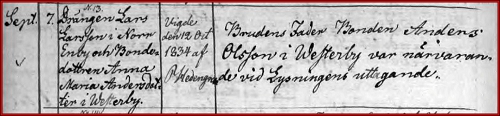 N. 13.
Sept. 7. Drängen Lars
Larsson i Norr
Enby och Bonde-
dottren Anna
Maria Andersdot-
ter i Westerby.
Vigde
den 12 Oct
1834 af
P. Hedengren
Brudens Fader Bonden Anders
Olsson i Westerby var närvaran-
de vid Lysningens uttagande.